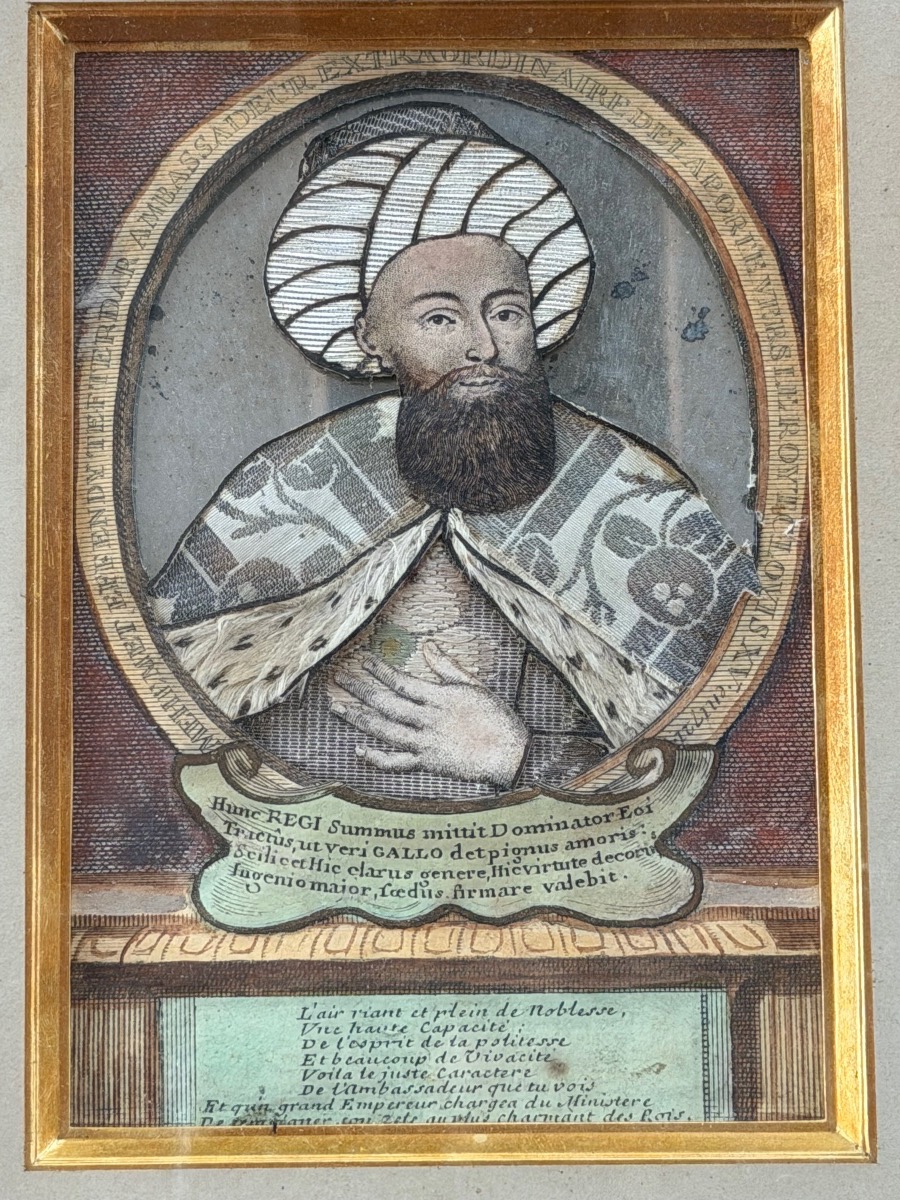 MEHEMET EFFENDY TEFTERDAR AMBASSADEUR EXTRAORDINAIRE DE LA PORTE VERS LE ROY LOUIS XV en 1721
Hunc REGI Summus mittit Dominator Eoi
Tractus, ut veri GALLO det pignus amoris;
Scilicet Hic clarus genere, Hic virtute decorus
Ingenio maior, fœdus firmare valebit.
L'air riant et plein de Noblesse,
Vne haute Capacité;
De l'esprit de la politesse
Et beaucoup de Vivacite
Voila le juste Caractere
De l'Ambassadeur que tu vois
Et qu'un grand Empereur chargea du Ministere
De temoigner son Zele au plus charmant des Rois.